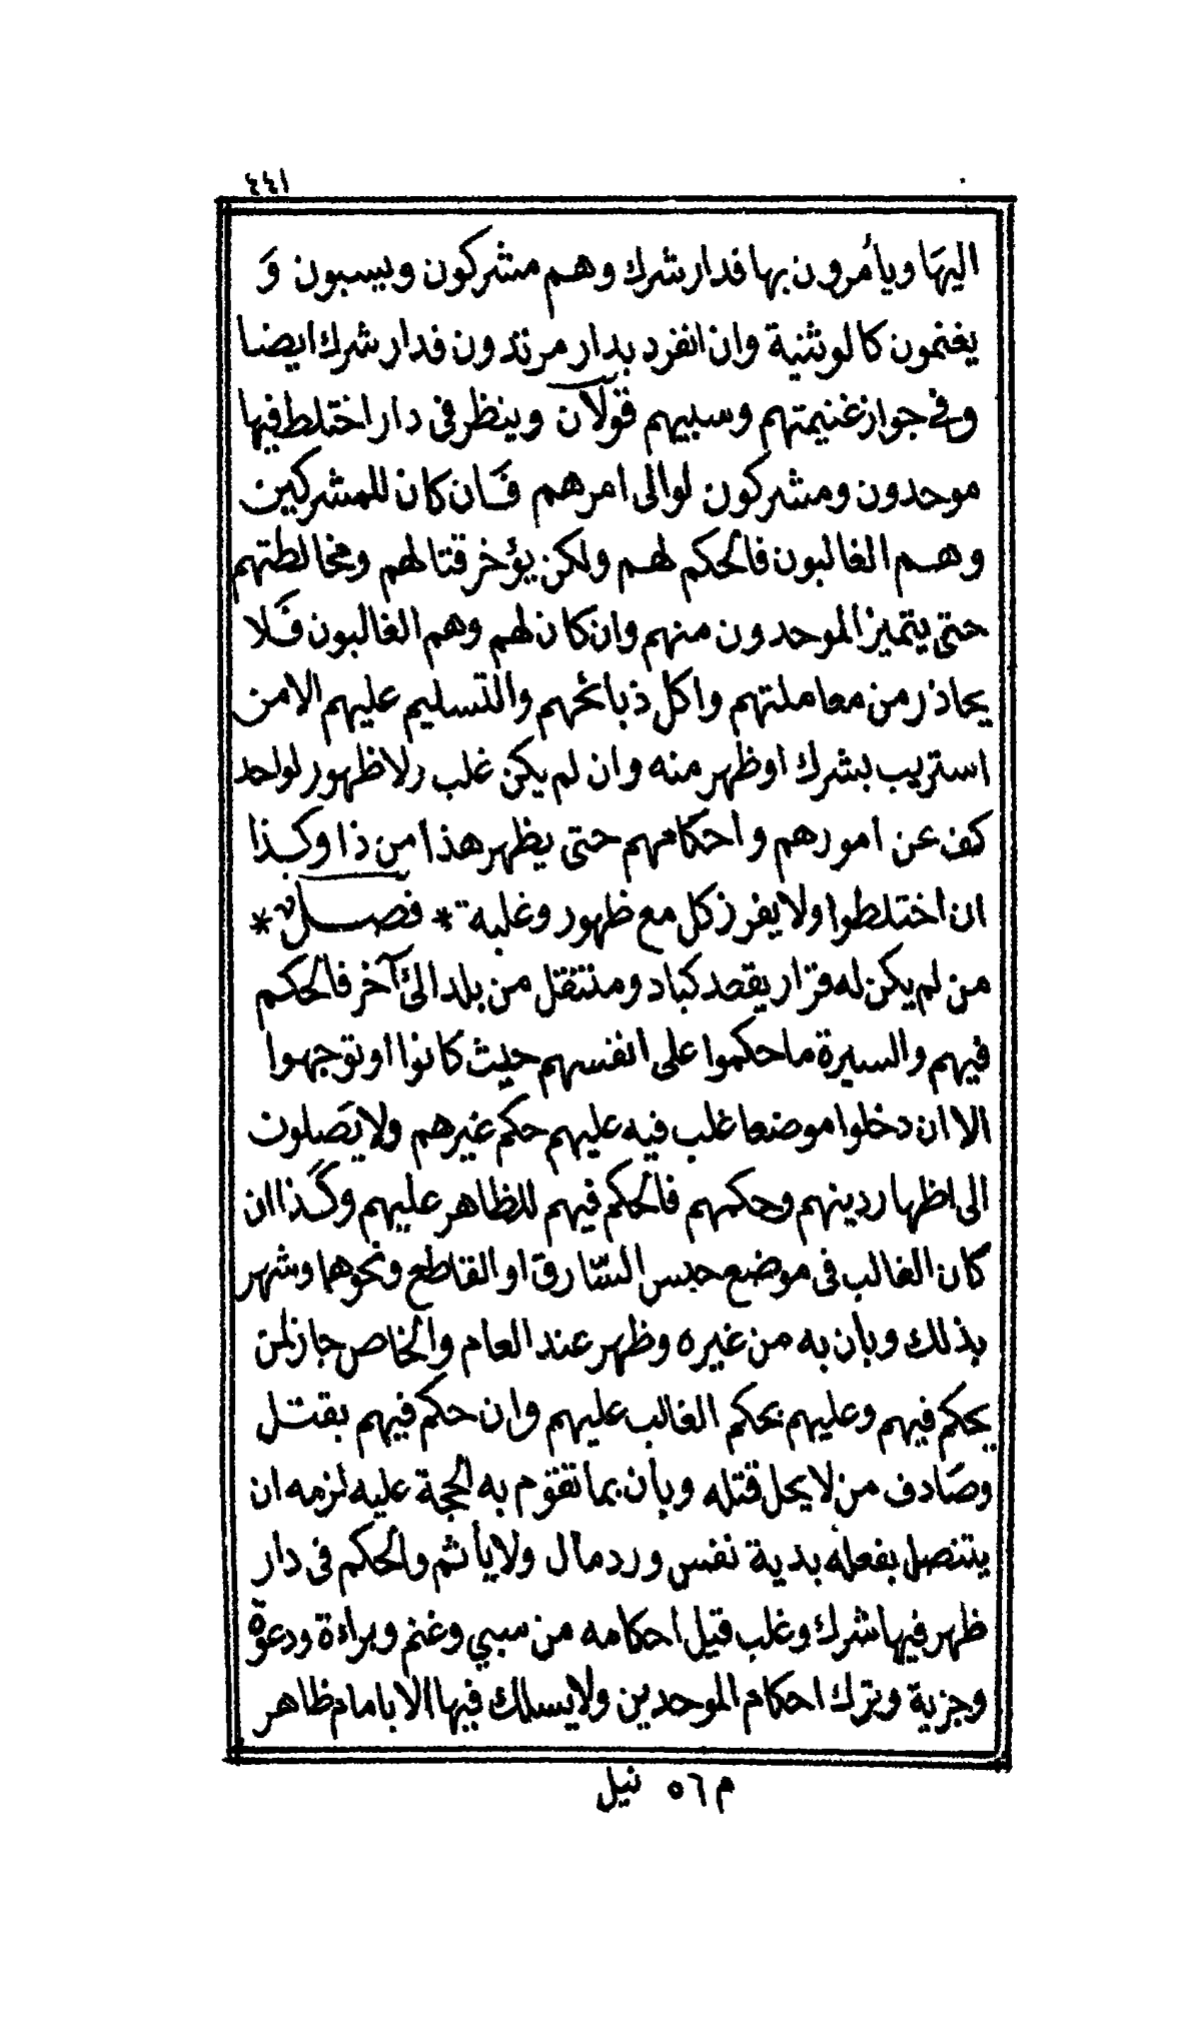 ٤٤١
اليهَا ويأمرون بها فدار شرك وهم مشركون ويسبون وَ
يغنمون كالوثنية وان انفرد بدار مرتدون فدار شرك ايضا
وفى جواز غنيمتهم وسبيهم قولان وينظر فى دار اختلط فيها
موحدون ومشركون لوالى امرهم فَان كان للمشركين
وهم الغالبون فالحكم لهم ولكن يؤخر قتالهم ومخالطتهم
حتى يتميز الموحدون منهم وان كان لهم وهم الغالبون فَلا
يحاذر من معاملتهم واكل ذبائحهم والتسليم عليهم الا من
استريب بشرك او ظهر منه وان لم يكن غلب ولا ظهور لواحد
كف عن امورهم واحكامهم حتى يظهر هذا من ذا وكذا
ان اختلطوا ولا يفرز كل مع ظهور وغلبة * فصل *
من لم يكن له قرار يقصد كباد ومنتقل من بلد الى آخر فالحكم
فيهم والسيرة ما حكموا على انفسهم حيث كانوا او توجهوا
الا ان دخلوا موضعا غلب فيه عليهم حكم غيرهم ولا يَصلون
الى اظهار دينهم وحكمهم فالحكم فيهم للظاهر عليهم وكذا ان
كان الغالب فى موضع حبس السّارق او القاطع ونحوهما وشهر
بذلك وبان به من غيره وظهر عند العام والخاص جاز لمن
يحكم فيهم وعليهم بحكم الغالب عليهم وان حكم فيهم بقتل
وصَادف من لا يحل قتله وبان بما تقوم به الحجة عليه لزمه ان
يتنصل بفعله بدية نفس ورد مال ولا يأثم والحكم فى دار
ظهر فيها شرك وغلب قيل احكامه من سبي وغنم وبراءة ودعوة
وجزية وترك احكام الموحدين ولا يسلك فيها الا بامام ظاهر
م ٥٦ نيل